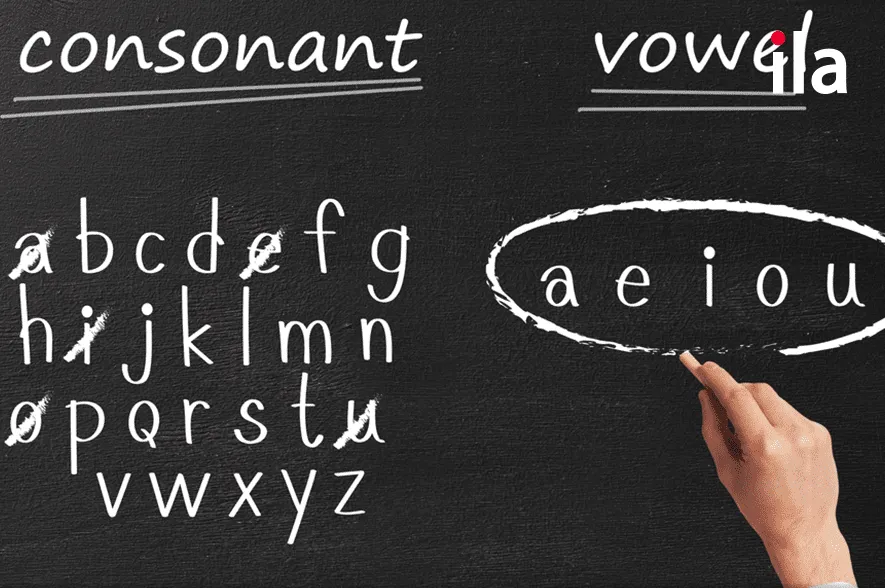 consonant
vowel
ila
a b c d e f g
h i j k l m n
o p q r s t u
v w x y z
a e i o u